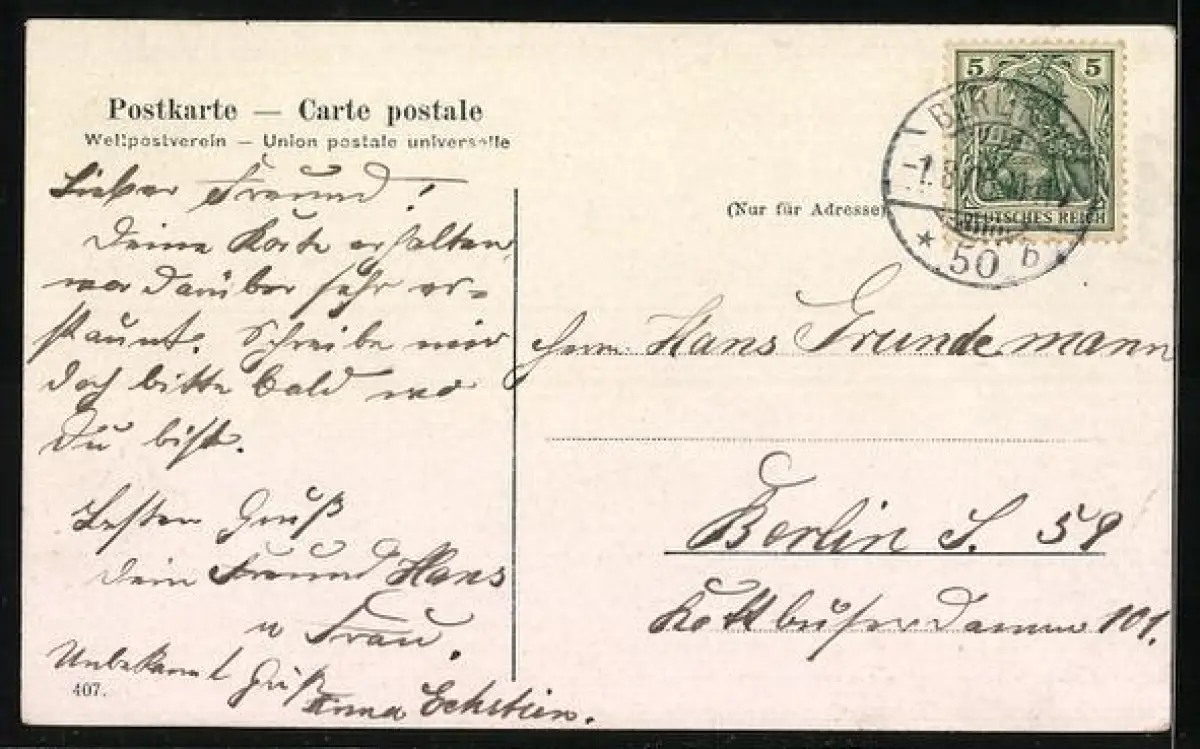 Postkarte — Carte postale
Weltpostverein — Union postale universelle
Lieber Freund!
Deine Karte erhalten,
war darüber sehr er-
staunt. Schreibe mir
doch bitte bald wo
Du bist.
Besten Gruß
Dein Freund Hans
u Frau.
Unbekannt Gruß
Anna Eckstein.
407.
(Nur für Adresse)
5 5
DEUTSCHES REICH
BERLIN
* 50 b
Herrn Hans Grundemann
Berlin S. 59
Kottbuser Damm 101.